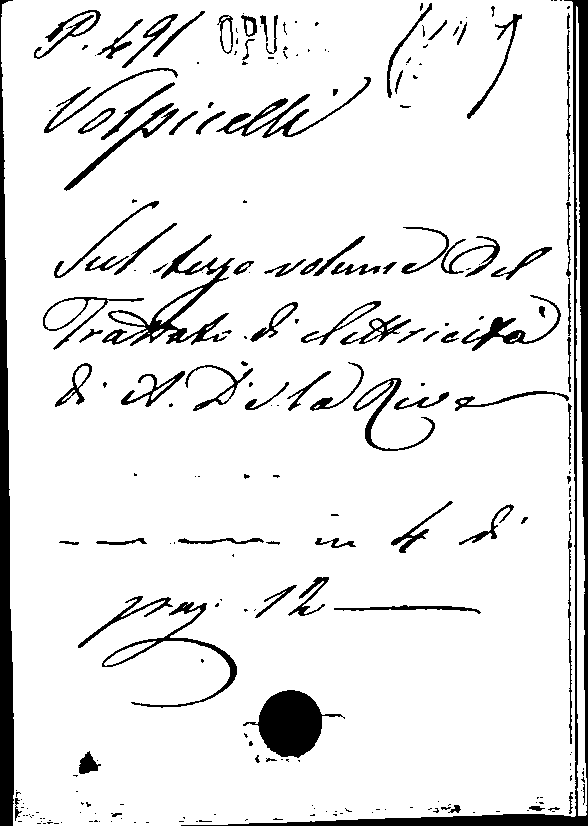 P. 491 OPUS
Volpicelli
Sul terzo volume del
Trattato di elettricità
di A. De la Rive
in 4 di
pag. 12